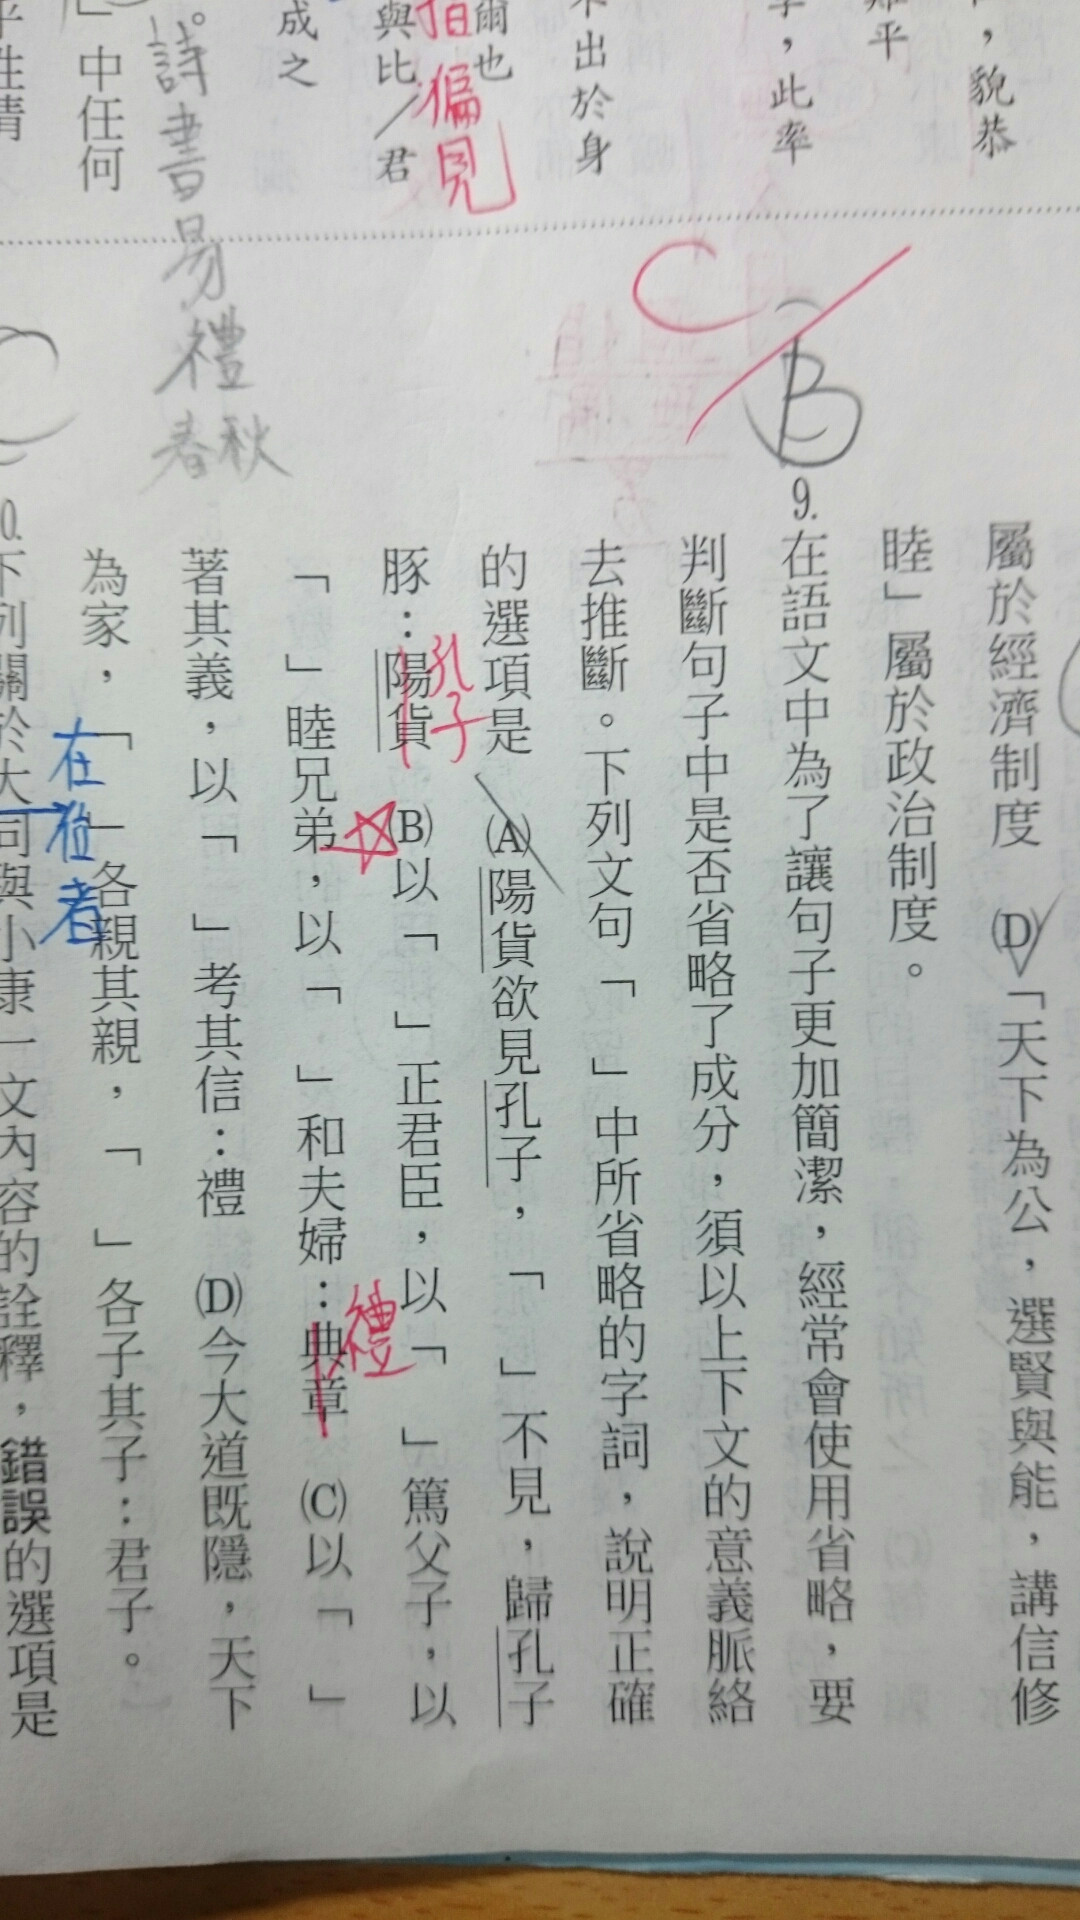 ，貌恭
平
，此率
出於身
爾也
與比／君
成之
」中任何
性情
偏見
詩書易禮春秋
C
B
屬於經濟制度　(D)「天下為公，選賢與能，講信修
睦」屬於政治制度。
9.在語文中為了讓句子更加簡潔，經常會使用省略，要
判斷句子中是否省略了成分，須以上下文的意義脈絡
去推斷。下列文句「　」中所省略的字詞，說明正確
的選項是　(A)陽貨欲見孔子，「　」不見，歸孔子
豚：陽貨　(B)以「　」正君臣，以「　」篤父子，以
孔子
「　」睦兄弟，以「　」和夫婦：典章　(C)以「　」
禮
著其義，以「　」考其信：禮　(D)今大道既隱，天下
為家，「　」各親其親，「　」各子其子：君子。
在位者
0.下列關於大同與小康一文內容的詮釋，錯誤的選項是